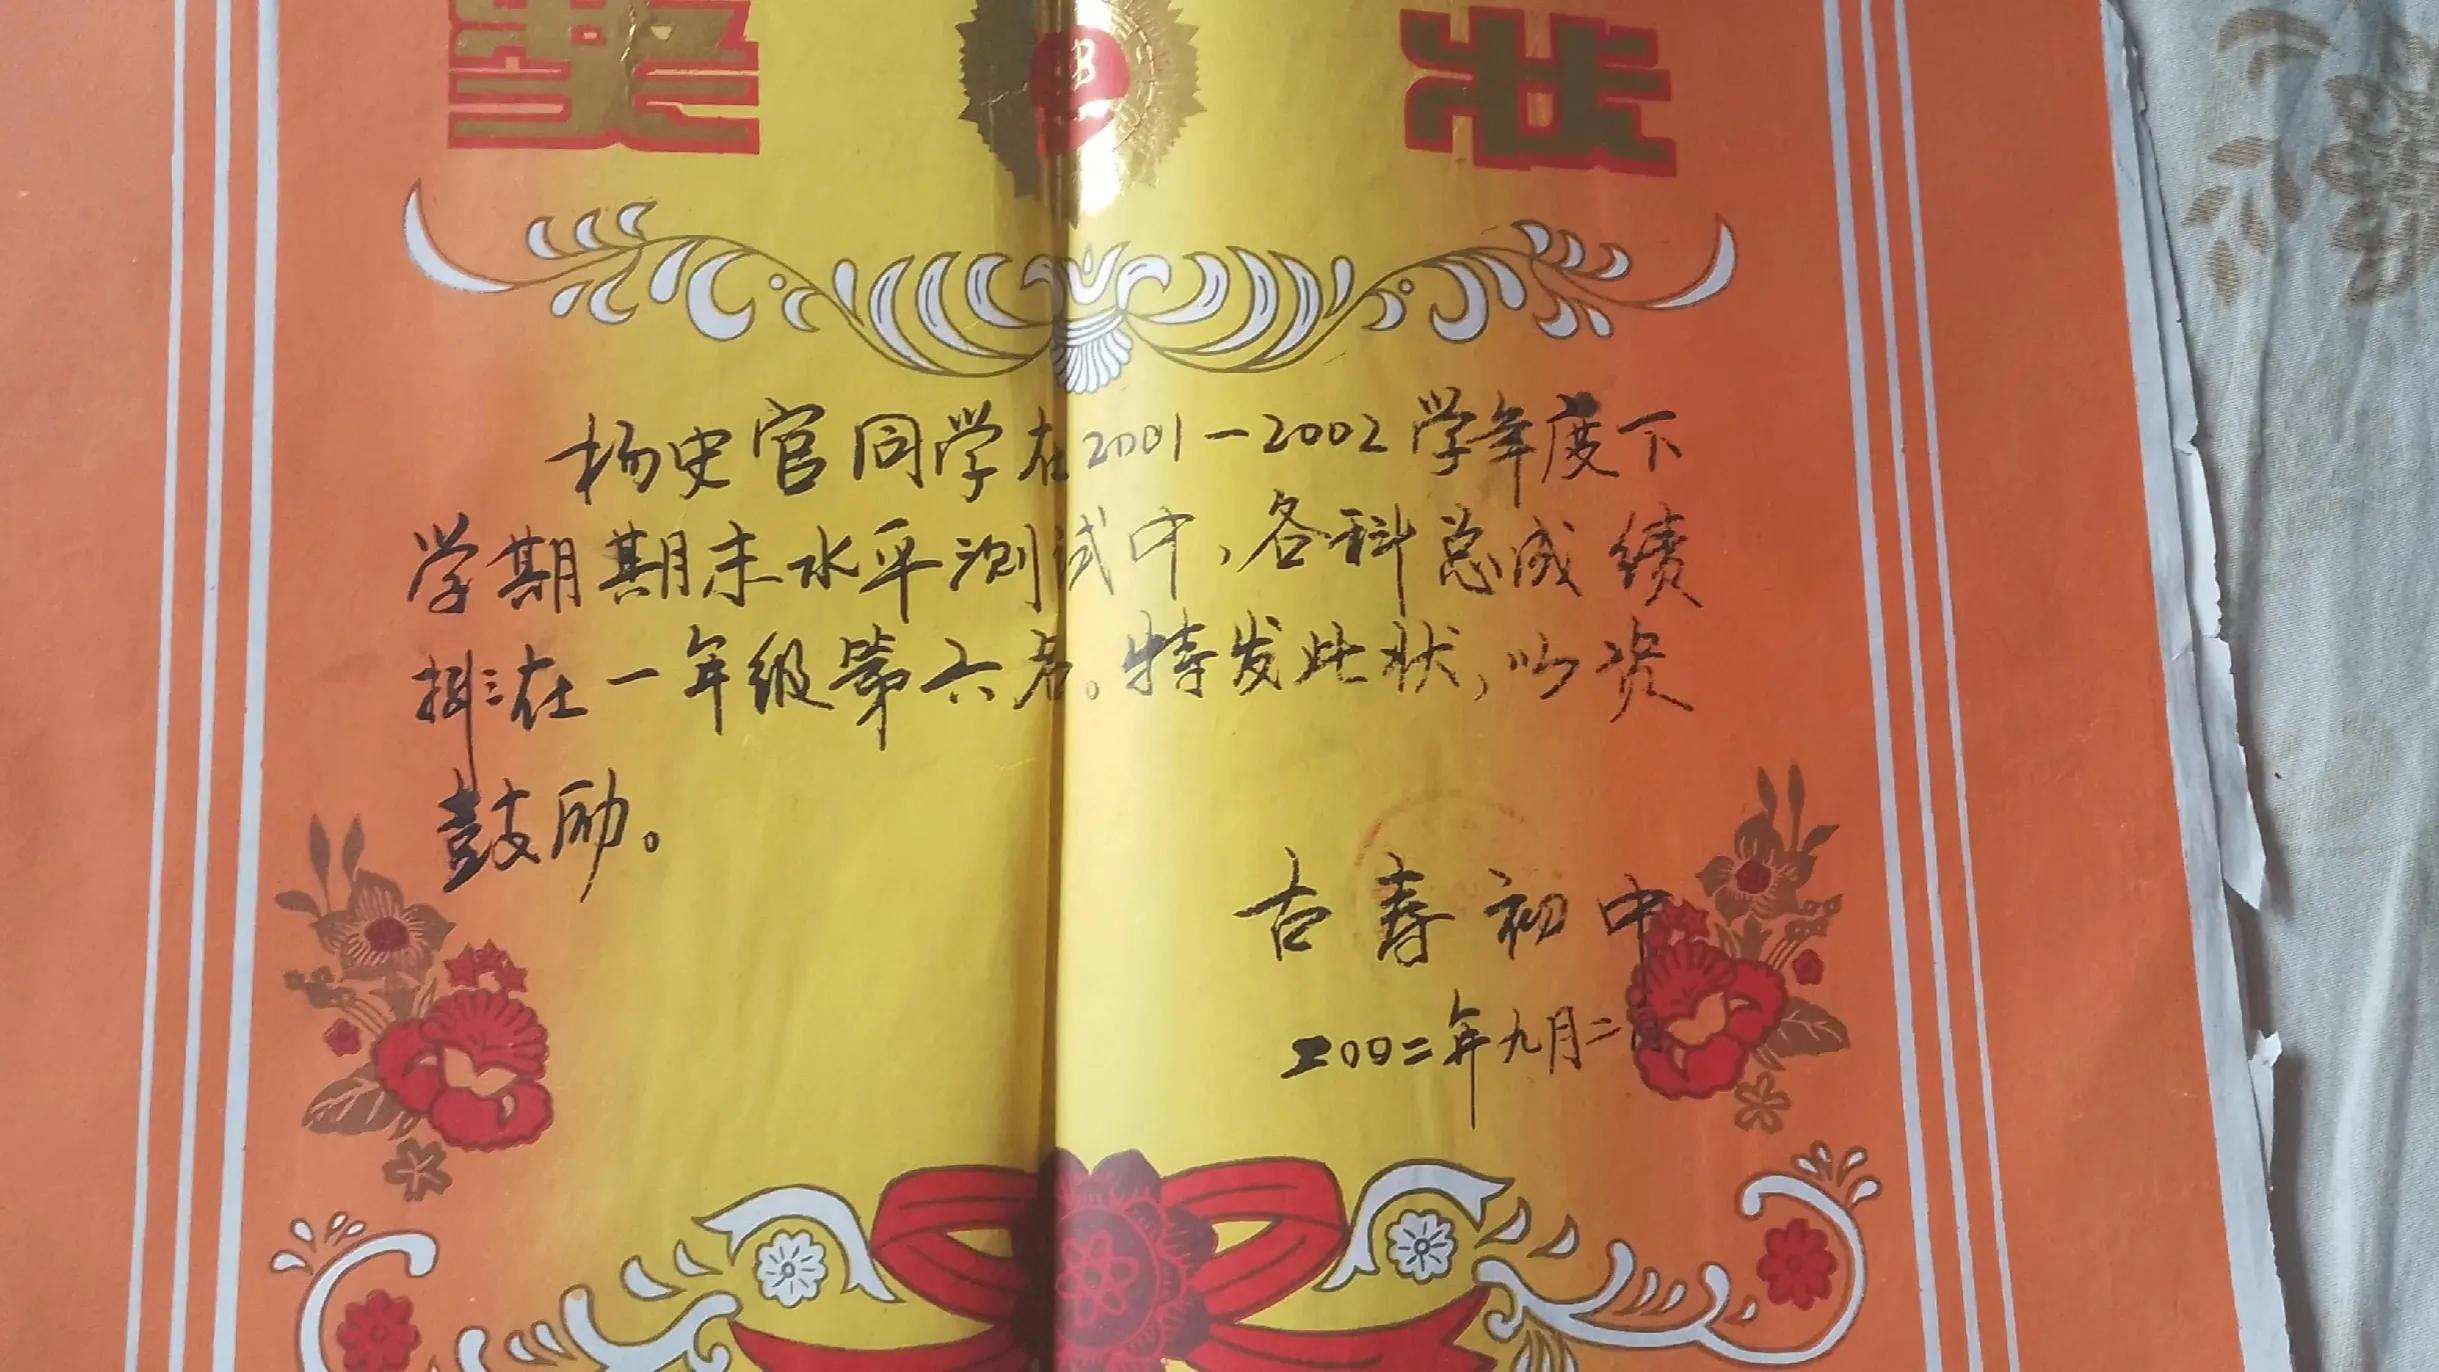 奖 状
杨史官同学在2001-2002学年度下
学期期末水平测试中,各科总成绩
排在一年级第六名。特发此状,以资
鼓励。
古寿初中
二00二年九月二